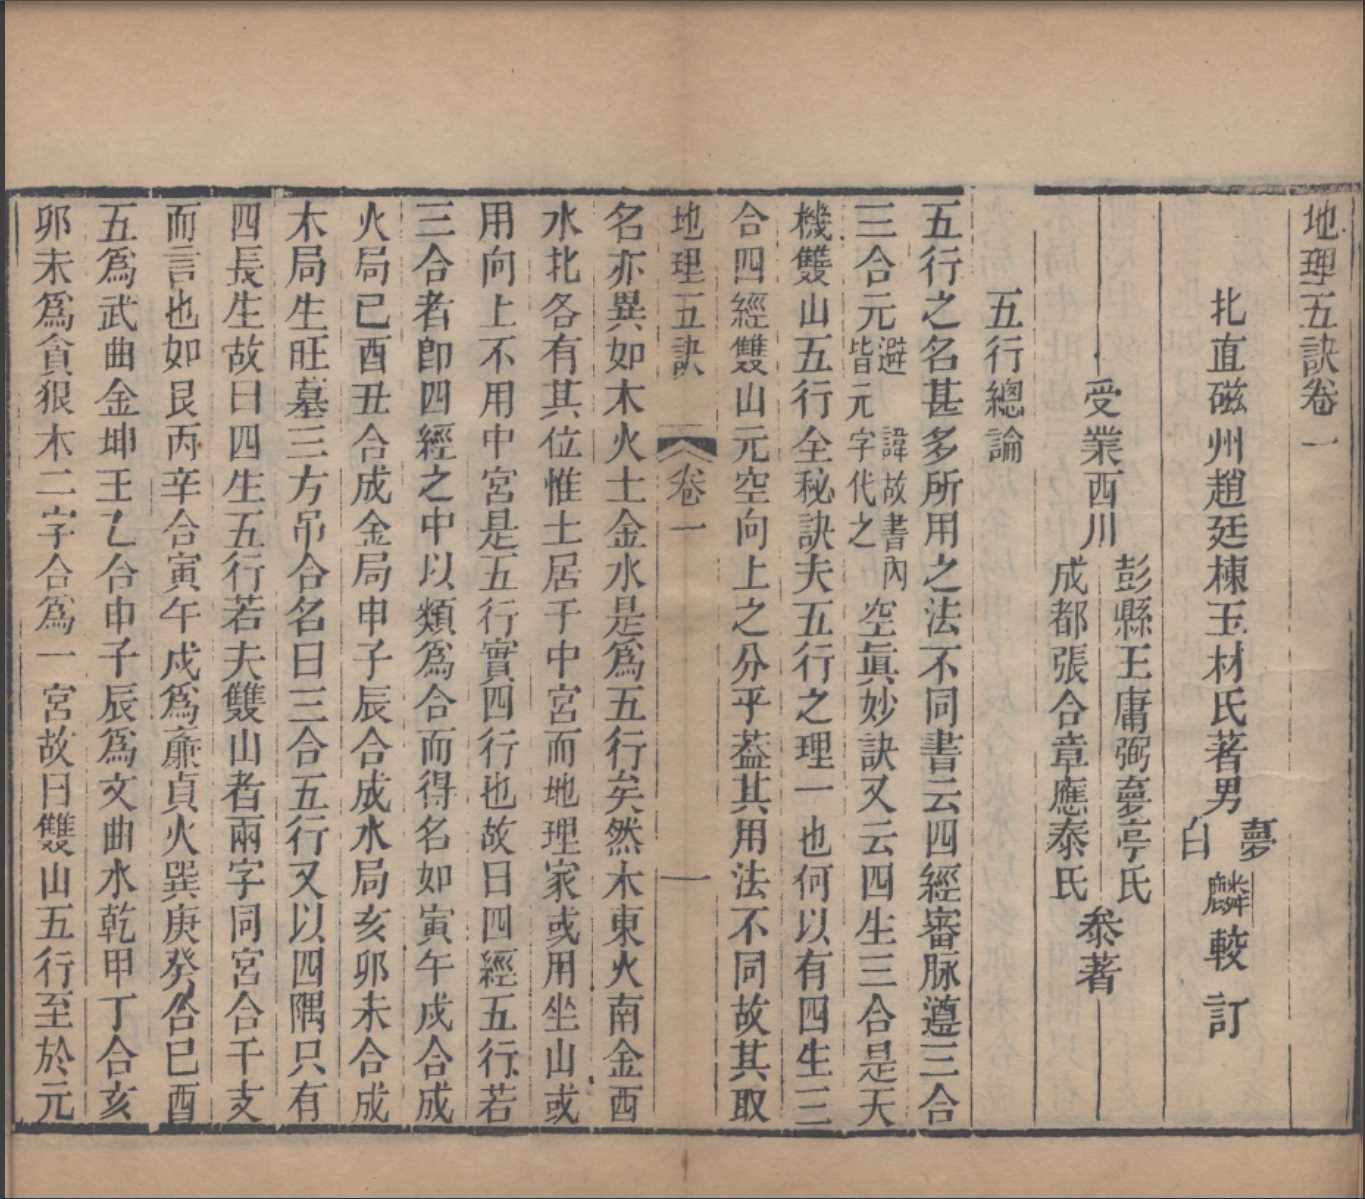 地理五訣卷一
北直磁州趙廷棟玉材氏著男
夢
白
麟較訂
受業西川
彭縣王庸弼夢亭氏
成都張合章應泰氏
叅著
五行總論
五行之名甚多所用之法不同書云四經審脉遵三合
三合元避諱故書內皆元字代之空眞妙訣又云四生三合是天
機雙山五行全秘訣夫五行之理一也何以有四生三
合四經雙山元空向上之分乎葢其用法不同故其取
地理五訣
卷一
一
名亦異如木火土金水是爲五行矣然木東火南金西
水北各有其位惟土居于中宮而地理家或用坐山或
用向上不用中宮是五行實四行也故曰四經五行若
三合者卽四經之中以類爲合而得名如寅午戌合成
火局巳酉丑合成金局申子辰合成水局亥卯未合成
木局生旺墓三方吊合名曰三合五行又以四隅只有
四長生故曰四生五行若夫雙山者兩字同宮合干支
而言也如艮丙辛合寅午戌爲廉貞火巽庚癸合巳酉
五爲武曲金坤壬乙合申子辰爲文曲水乾甲丁合亥
卯未爲貪狼木二字合爲一宮故曰雙山五行至於元